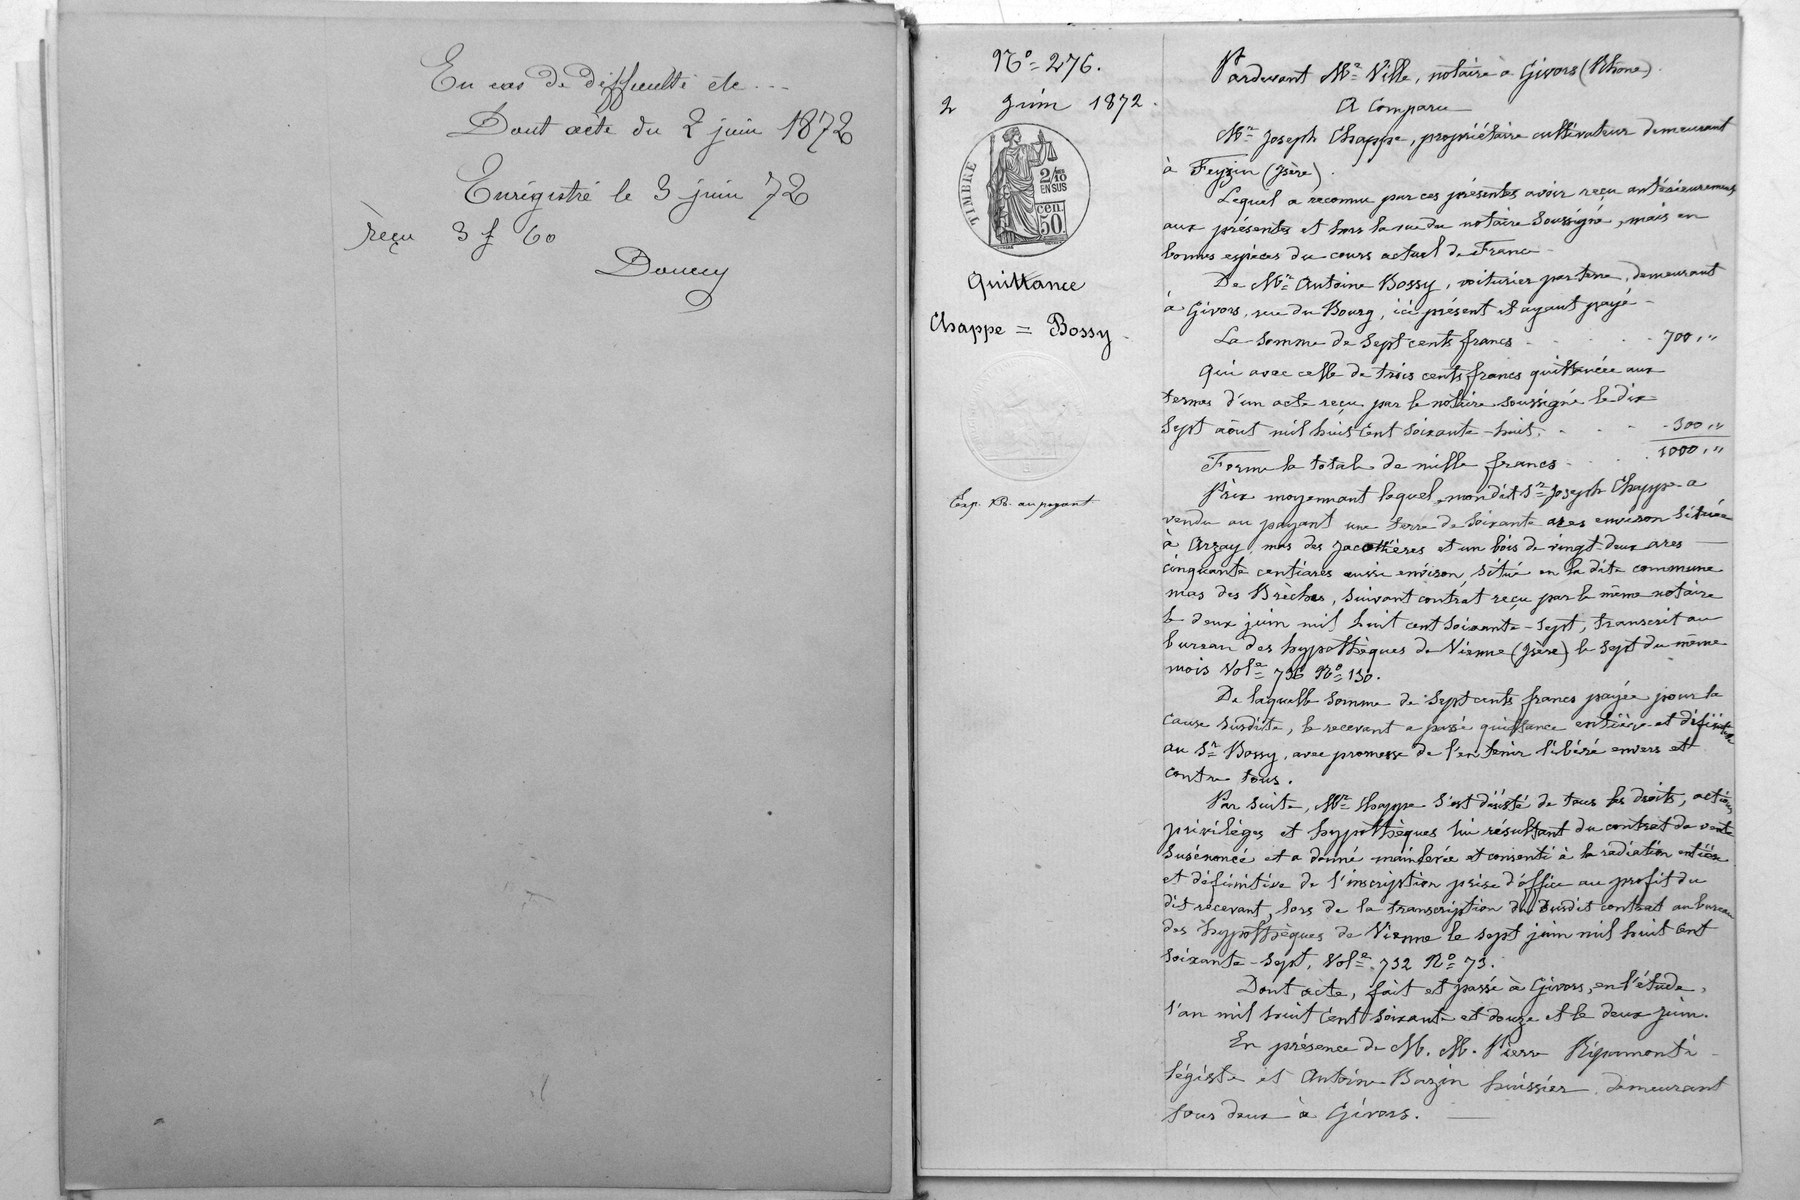 En cas de difficulté etc...
Dont acte du 2 juin 1872
Enregistré le 3 juin 72
reçu 3 f 60
N° 276.
2 Juin 1872.
TIMBRE
2/10 EN SUS
50 cen.
Quittance
Chappe = Bossy
Exp. au payant
Pardevant Me Ville, notaire à Givors (Rhône).
A Comparu
Mr Joseph Chappe, propriétaire cultivateur demeurant
à Feyzin (Isère).
Lequel a reconnu par ces présentes avoir reçu antérieurement
aux présentes et hors la vue du notaire soussigné, mais en
bonnes espèces du cours actuel de France
De Mr Antoine Bossy, voiturier par terre, demeurant
à Givors, rue du Bourg, ici présent et ayant payé
La somme de sept cents francs 700,"
Qui avec celle de trois cents francs quittancée aux
termes d'un acte reçu par le notaire soussigné le dix
sept août mil huit cent soixante-huit. 300,"
Forme la totale de mille francs 1000,"
Prix moyennant lequel, mondit Sr Joseph Chappe a
vendu au payant une terre de soixante ares environ située
à Arzay, mas des Jacothières et un bois de vingt-deux ares
cinquante centiares aussi environ, situé en la dite commune
mas des Brèches, suivant contrat reçu par le même notaire
le deux juin mil huit cent soixante-sept, transcrit au
bureau des hypothèques de Vienne (Isère) le sept du même
mois Vole 736 N° 130.
De laquelle somme de sept cents francs payée pour la
cause susdite, le recevant a passé quittance entière et définitive
au Sr Bossy, avec promesse de l'en tenir libéré envers et
contre tous.
Par suite, Mr Chappe s'est désisté de tous les droits, actions
privilèges et hypothèques lui résultant du contrat de vente
susénoncé et a donné mainlevée et consenti à la radiation entière
et définitive de l'inscription prise d'office au profit du
dit recevant, lors de la transcription du susdit contrat au bureau
des hypothèques de Vienne le sept juin mil huit cent
soixante-sept, Vole 732 N° 73.
Dont acte, fait et passé à Givors, en l'étude,
l'an mil huit cent soixante et douze et le deux juin.
En présence de M. M. Pierre Ripamonti
légiste et Antoine Bazin huissier demeurant
tous deux à Givors.